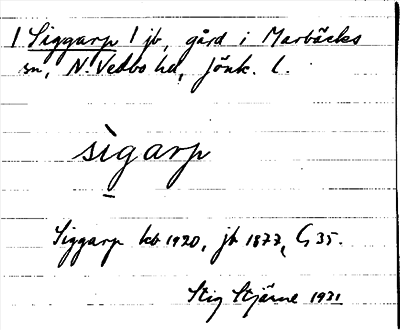 / Siggarp / jb, gård i Marbäcks
sn, N. Vedbo hd, Jönk. l.
sìgarp
Siggarp kb 1920, jb 1877, G 35.
Stig Stjärne 1931